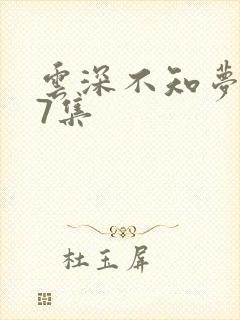 雲深不知夢
7集
杜玉屏